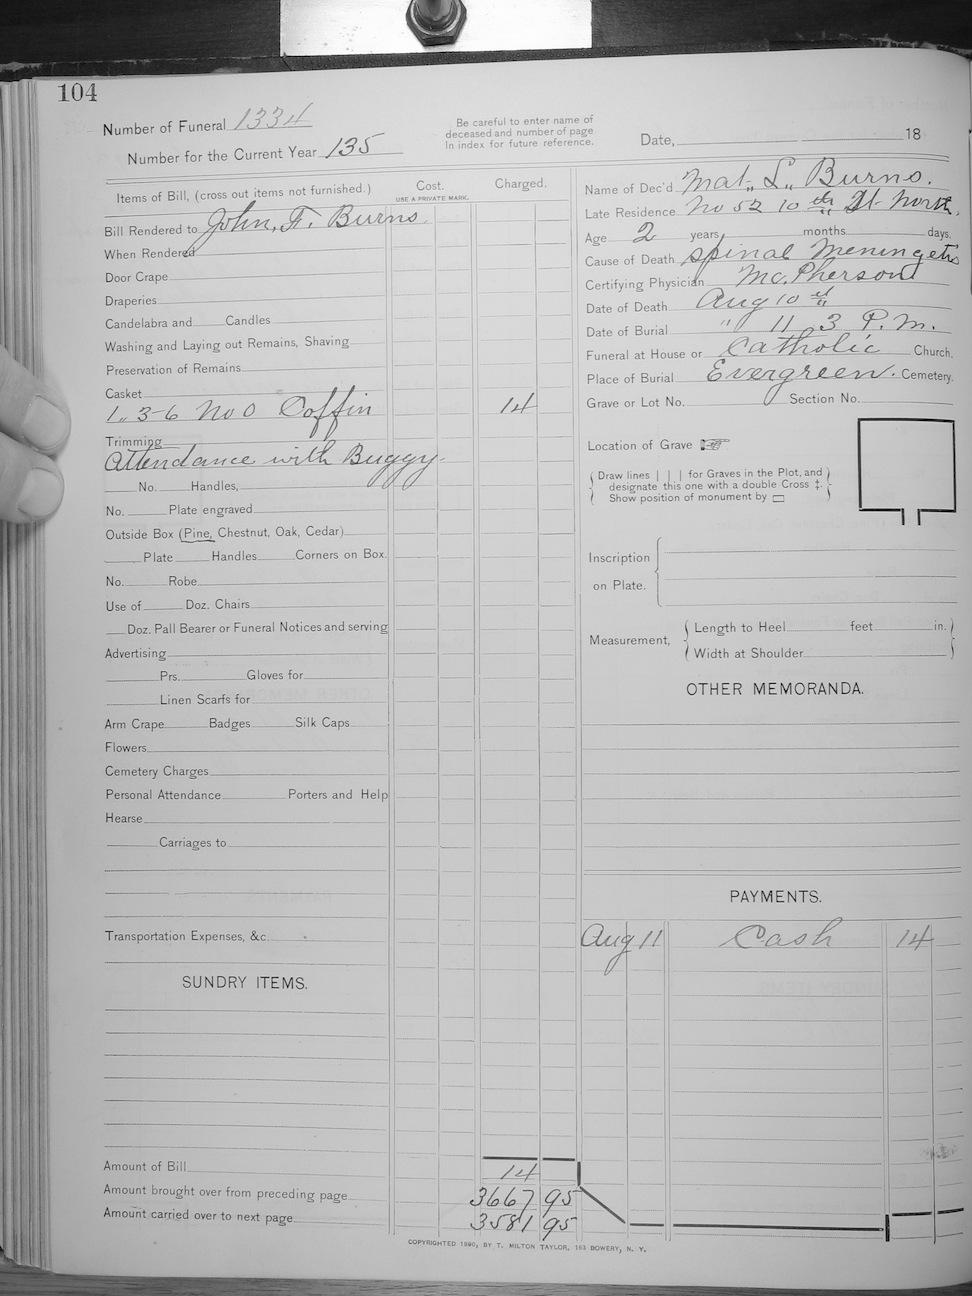 104
Number of Funeral 1334
Number for the Current Year 135
Be careful to enter name of
deceased and number of page
In index for future reference.
Date, 18
Items of Bill, (cross out items not furnished.)
Cost.
USE A PRIVATE MARK.
Charged.
Bill Rendered to John, F. Burns
When Rendered
Door Crape
Draperies
Candelabra and Candles
Washing and Laying out Remains, Shaving
Preservation of Remains
Casket
1,, 3-6 No 0 Coffin 14
Trimming
Attendance with Buggy
No. Handles,
No. Plate engraved
Outside Box (Pine, Chestnut, Oak, Cedar)
Plate Handles Corners on Box.
No. Robe
Use of Doz. Chairs
Doz. Pall Bearer or Funeral Notices and serving
Advertising
Prs. Gloves for
Linen Scarfs for
Arm Crape Badges Silk Caps
Flowers
Cemetery Charges
Personal Attendance Porters and Help
Hearse
Carriages to
Transportation Expenses, &c.
SUNDRY ITEMS.
Amount of Bill 14
Amount brought over from preceding page 3667 95
Amount carried over to next page 3581 95
Name of Dec'd Mat,, L,, Burns.
Late Residence No 52 10 th St North,
Age 2 years, months days.
Cause of Death Spinal Meningetis
Certifying Physician Mc, Pherson
Date of Death Aug 10 th
Date of Burial " 11 3 P.M.
Funeral at House or Catholic Church,
Place of Burial Evergreen. Cemetery.
Grave or Lot No. Section No.
Location of Grave ☞
Draw lines | | | for Graves in the Plot, and
designate this one with a double Cross ‡.
Show position of monument by ▭
Inscription
on Plate.
Measurement,
Length to Heel feet in.
Width at Shoulder
OTHER MEMORANDA.
PAYMENTS.
Aug 11 Cash 14
COPYRIGHTED 1890, BY T. MILTON TAYLOR, 163 BOWERY, N. Y.